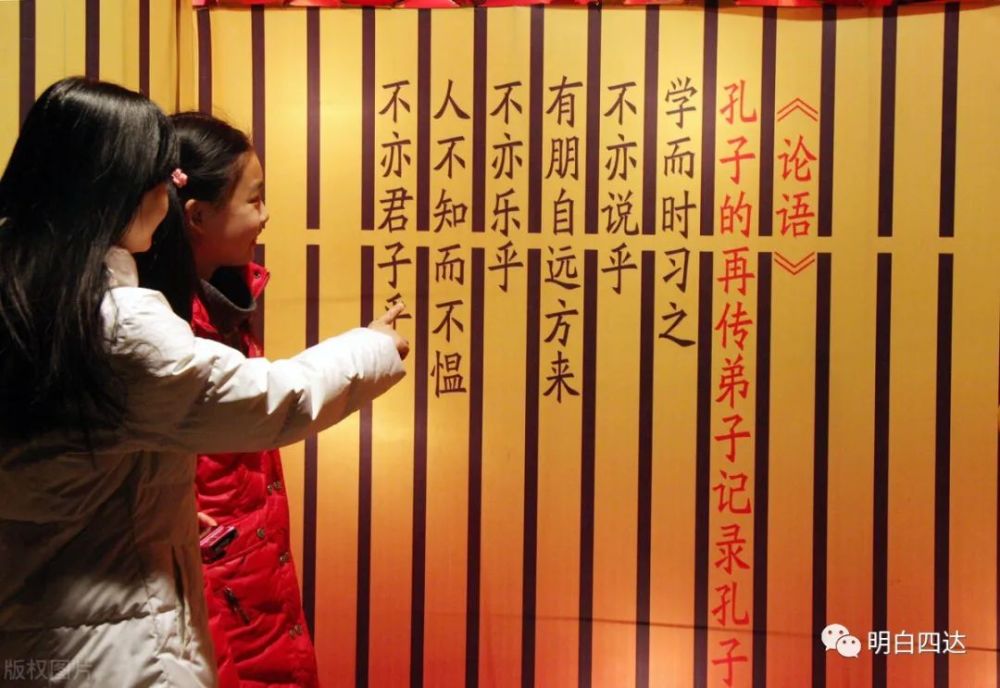 《论语》
孔子的再传弟子记录孔子
学而时习之
不亦说乎
有朋自远方来
不亦乐乎
人不知而不愠
不亦君子乎
明白四达
版权图片